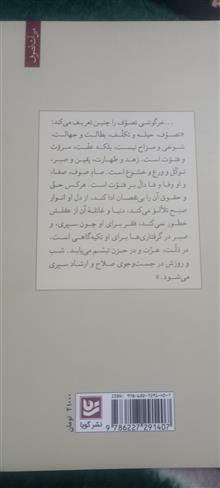 میراث تصوف
...خرگوشی تصوّف را چنین تعریف می‌کند:
«تصوّف، حیله و تکلّف، بطالت و جهالت،
شوخی و مزاح نیست، بلکه عفّت، مروّت
و فتوّت است. زهد و طهارت، یقین و صبر،
توکّل و ورع و خشوع است. صاد صوف، صفا،
و او وفا و فا دال بر فتوّت است. هرکس حق
و حقوق آن را بی‌نقصان ادا کند، از دل او انوار
صبح تلألؤ می‌کند، دنیا و غائلهٔ آن از عقلش
خطور نمی‌کند، فقر برای او چون سپری، و
صبر در گرفتاری‌ها برای او تکیه‌گاهی است.
در ذلّت، عزّت و در حزن تبسّم می‌یابد. شب
و روزش در جست‌وجوی صلاح و ارشاد سپری
می‌شود.»
۲۱۰۰۰ تومان
ISBN: 978-622-7291-40-7
9 786227 291407
نشر گویا